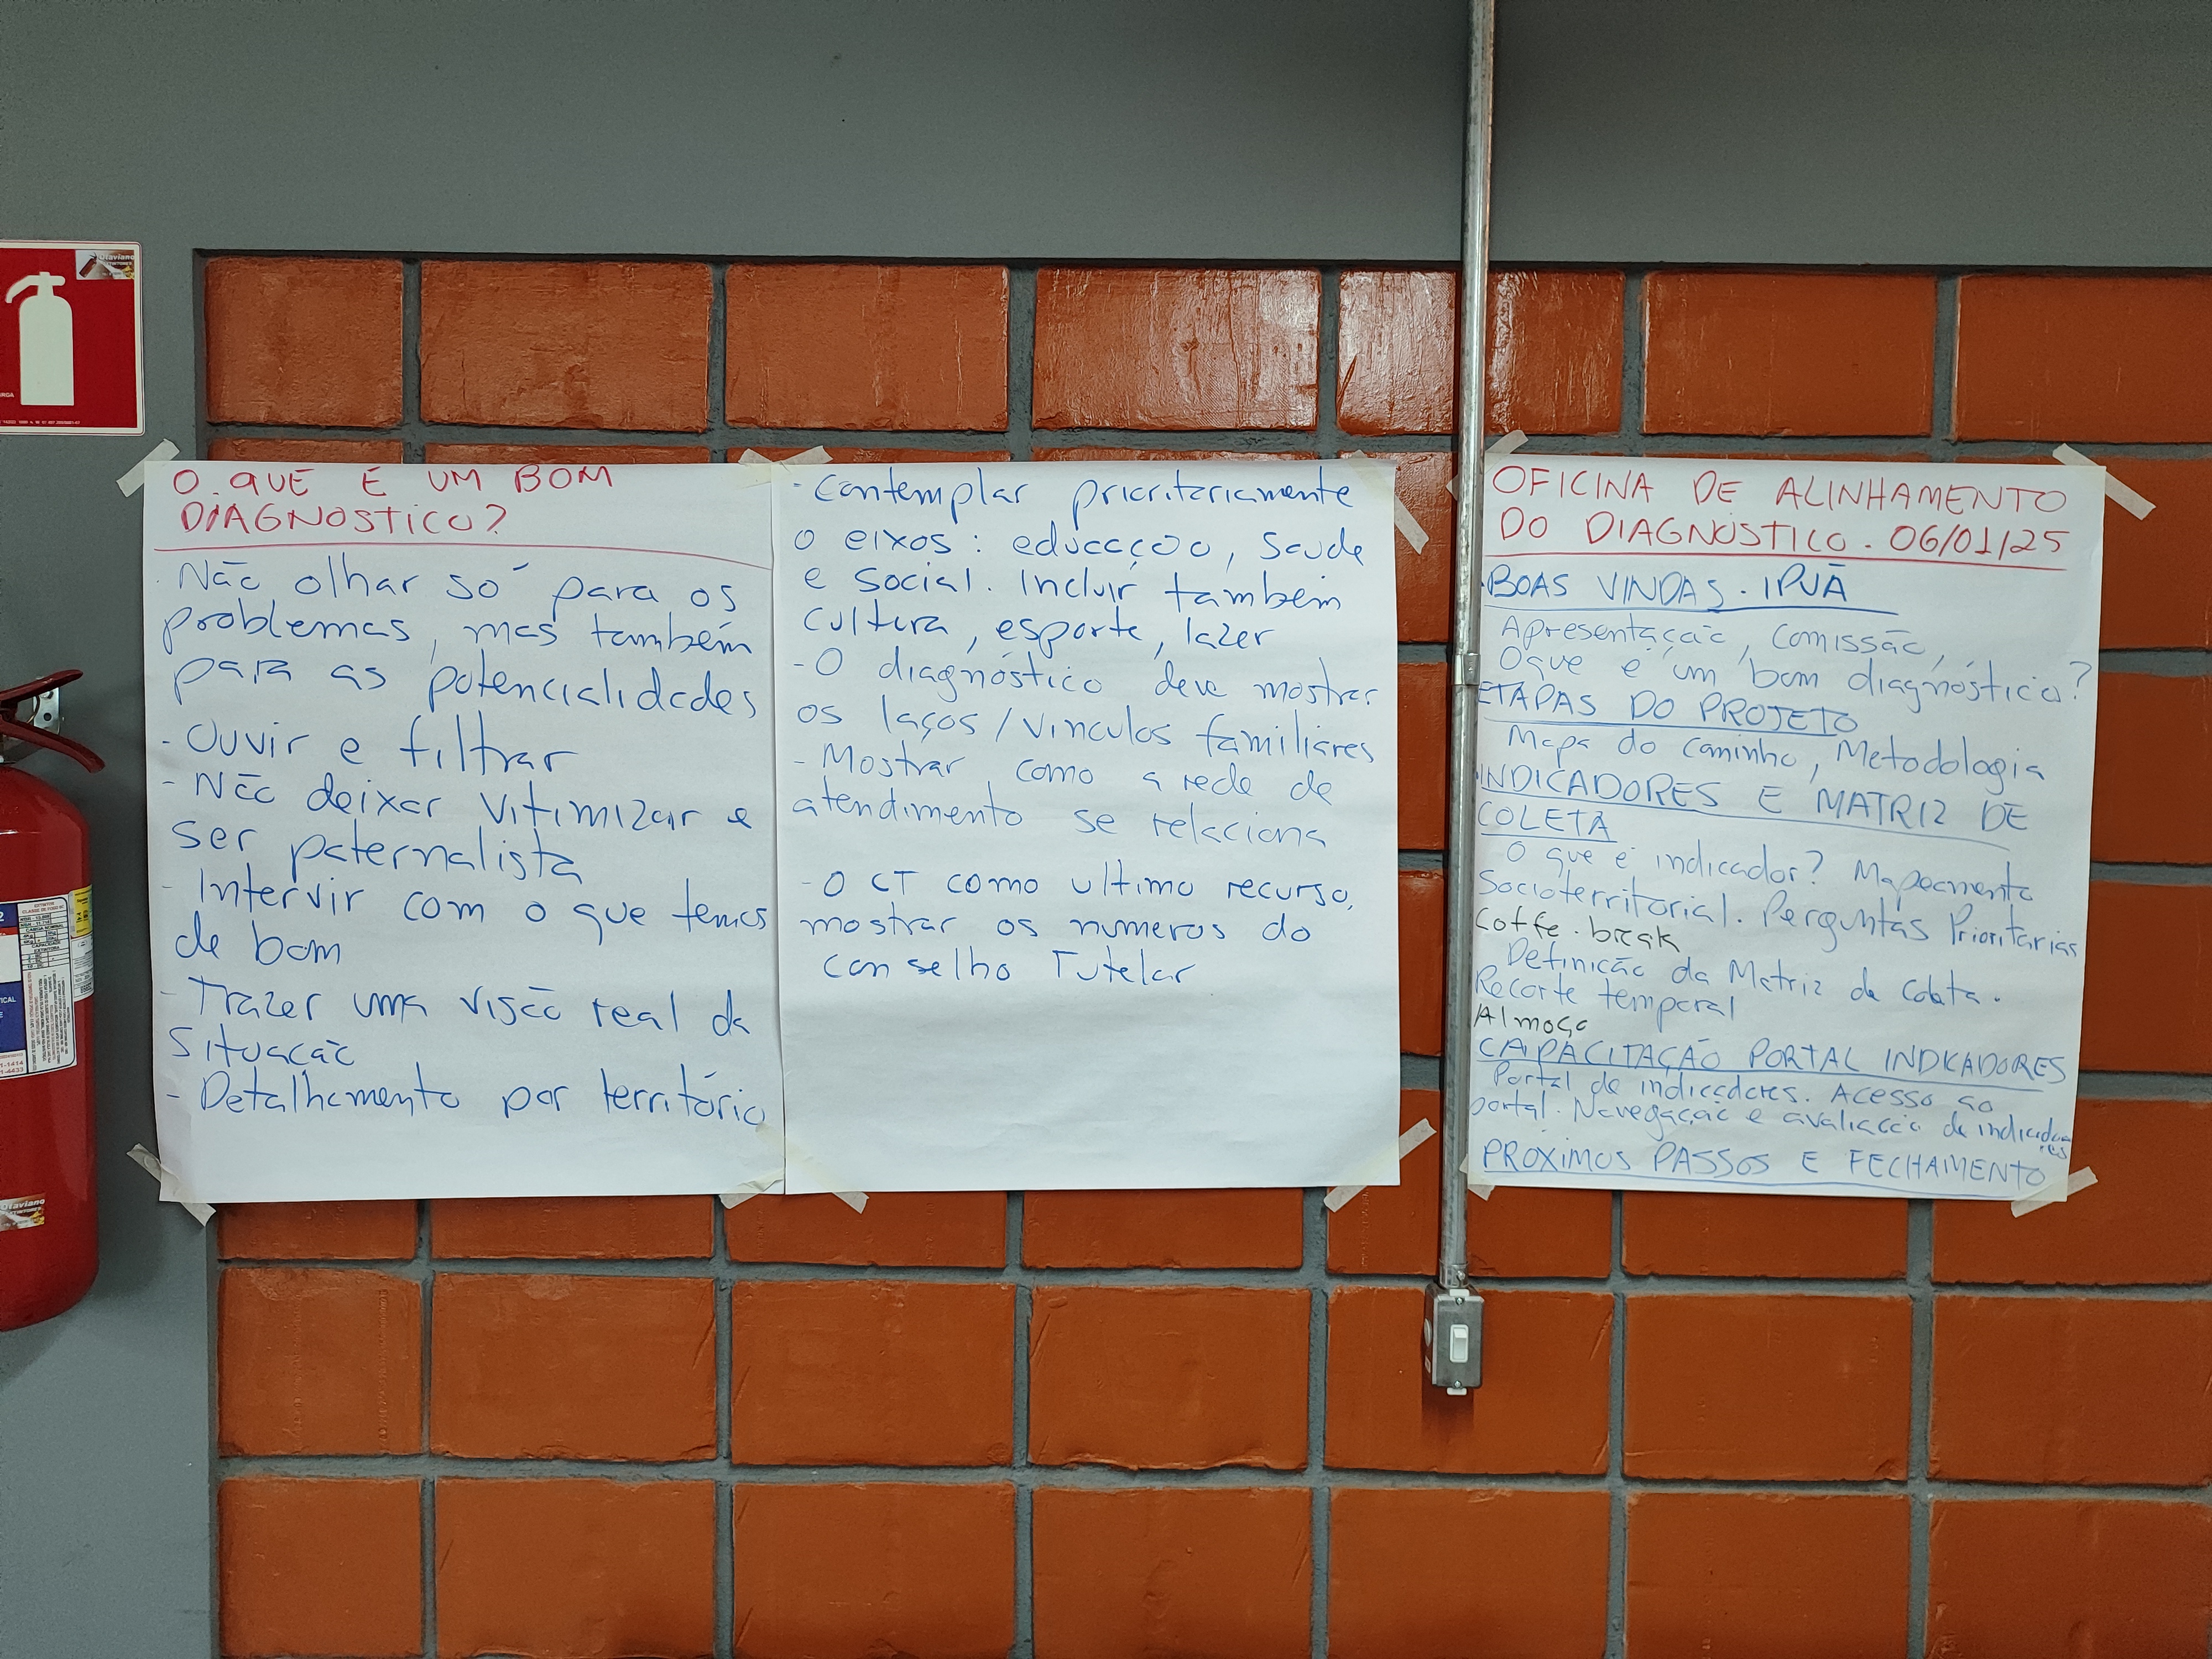 O QUE É UM BOM
DIAGNÓSTICO?
· Não olhar só para os
problemas, mas também
para as potencialidades
- Ouvir e filtrar
- Não deixar vitimizar e
ser paternalista
- Intervir com o que temos
de bom
- Trazer uma visão real da
situação
- Detalhamento por território
- Contemplar prioritariamente
o eixos: educação, saude
e social. Incluir também
cultura, esporte, lazer
- O diagnóstico deve mostrar
os laços/vinculos familiares
- Mostrar como a rede de
atendimento se relaciona
- O CT como ultimo recurso,
mostrar os numeros do
Conselho Tutelar
OFICINA DE ALINHAMENTO
DO DIAGNÓSTICO. 06/01/25
· BOAS VINDAS. IPUÃ
Apresentação, Comissão,
O que é um bom diagnóstico?
ETAPAS DO PROJETO
Mapa do caminho, Metodologia
INDICADORES E MATRIZ DE
COLETA
O que é indicador? Mapeamento
Socioterritorial. Perguntas Prioritarias
Coffe-break
Definição da Matriz de Coleta.
Recorte temporal
Almoço
CAPACITAÇÃO PORTAL INDICADORES
Portal de indicadores. Acesso ao
portal. Navegação e avaliação de indicadores
PROXIMOS PASSOS E FECHAMENTO
Otaviano
EXTINTORES